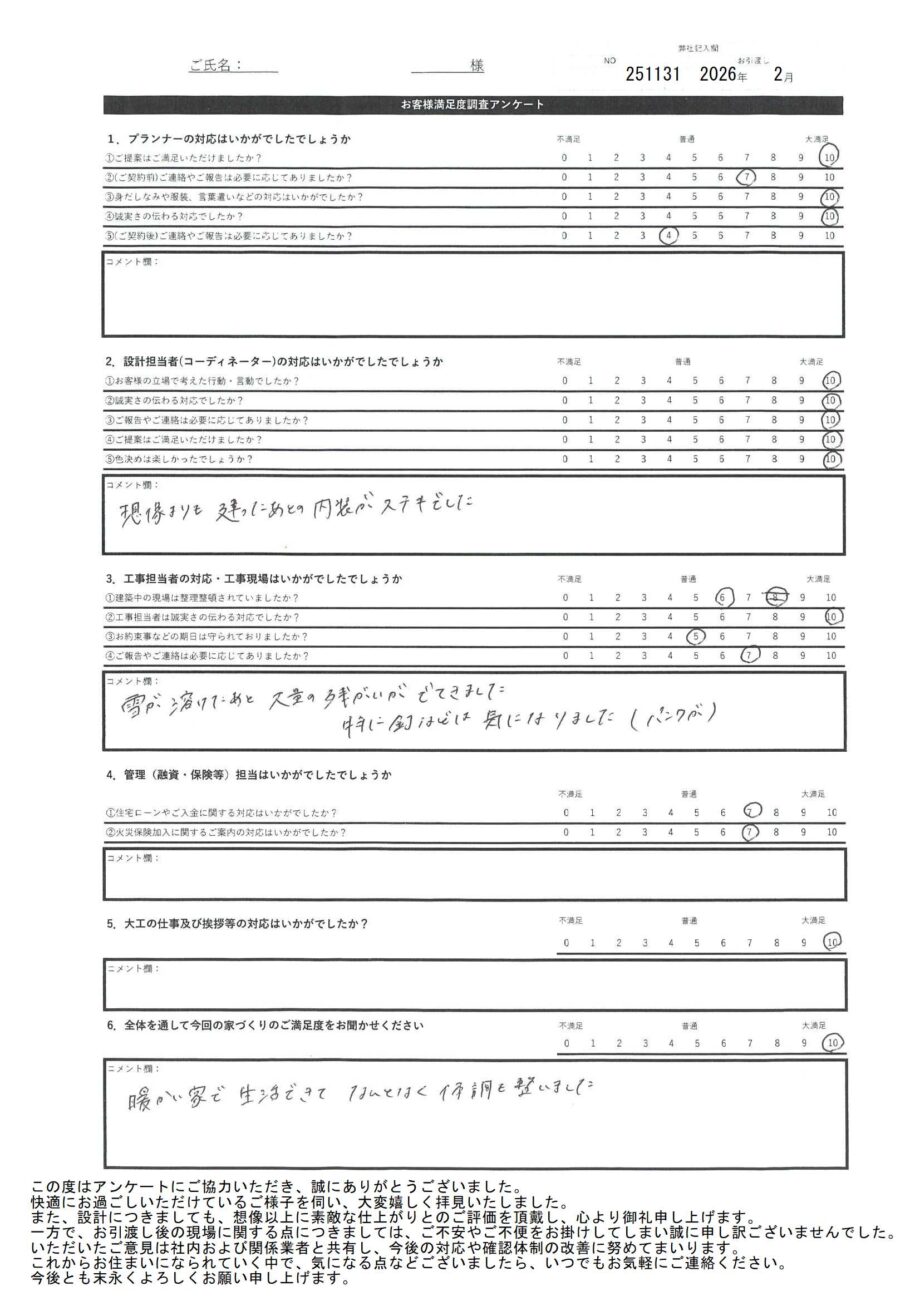 弊社記入欄
ご氏名： 様 NO 251131 2026年 お引渡し 2月
お客様満足度調査アンケート
1．プランナーの対応はいかがでしたでしょうか 不満足 普通 大満足
①ご提案はご満足いただけましたか？ 0 1 2 3 4 5 6 7 8 9 10
②(ご契約前)ご連絡やご報告は必要に応じてありましたか？ 0 1 2 3 4 5 6 7 8 9 10
③身だしなみや服装、言葉遣いなどの対応はいかがでしたか？ 0 1 2 3 4 5 6 7 8 9 10
④誠実さの伝わる対応でしたか？ 0 1 2 3 4 5 6 7 8 9 10
⑤(ご契約後)ご連絡やご報告は必要に応じてありましたか？ 0 1 2 3 4 5 6 7 8 9 10
コメント欄：
2．設計担当者(コーディネーター)の対応はいかがでしたでしょうか 不満足 普通 大満足
①お客様の立場で考えた行動・言動でしたか？ 0 1 2 3 4 5 6 7 8 9 10
②誠実さの伝わる対応でしたか？ 0 1 2 3 4 5 6 7 8 9 10
③ご報告やご連絡は必要に応じてありましたか？ 0 1 2 3 4 5 6 7 8 9 10
④ご提案はご満足いただけましたか？ 0 1 2 3 4 5 6 7 8 9 10
⑤色決めは楽しかったでしょうか？ 0 1 2 3 4 5 6 7 8 9 10
コメント欄：
想像よりも 建ったあとの 内装が ステキでした
3．工事担当者の対応・工事現場はいかがでしたでしょうか 不満足 普通 大満足
①建築中の現場は整理整頓されていましたか？ 0 1 2 3 4 5 6 7 8 9 10
②工事担当者は誠実さの伝わる対応でしたか？ 0 1 2 3 4 5 6 7 8 9 10
③お約束事などの期日は守られておりましたか？ 0 1 2 3 4 5 6 7 8 9 10
④ご報告やご連絡は必要に応じてありましたか？ 0 1 2 3 4 5 6 7 8 9 10
コメント欄：
雪が溶けたあと 大量の残がいが でてきました
特に釘などは 気になりました（パンクが）
4．管理（融資・保険等）担当はいかがでしたでしょうか
不満足 普通 大満足
①住宅ローンやご入金に関する対応はいかがでしたか？ 0 1 2 3 4 5 6 7 8 9 10
②火災保険加入に関するご案内の対応はいかがでしたか？ 0 1 2 3 4 5 6 7 8 9 10
コメント欄：
5．大工の仕事及び挨拶等の対応はいかがでしたか？ 不満足 普通 大満足
0 1 2 3 4 5 6 7 8 9 10
コメント欄：
6．全体を通して今回の家づくりのご満足度をお聞かせください 不満足 普通 大満足
0 1 2 3 4 5 6 7 8 9 10
コメント欄：
暖かい家で 生活できて なんとなく 体調も 整いました
この度はアンケートにご協力いただき、誠にありがとうございました。
快適にお過ごしいただけているご様子を伺い、大変嬉しく拝見いたしました。
また、設計につきましても、想像以上に素敵な仕上がりとのご評価を頂戴し、心より御礼申し上げます。
一方で、お引渡し後の現場に関する点につきましては、ご不安やご不便をお掛けしてしまい誠に申し訳ございませんでした。
いただいたご意見は社内および関係業者と共有し、今後の対応や確認体制の改善に努めてまいります。
これからお住まいになられていく中で、気になる点などございましたら、いつでもお気軽にご連絡ください。
今後とも末永くよろしくお願い申し上げます。